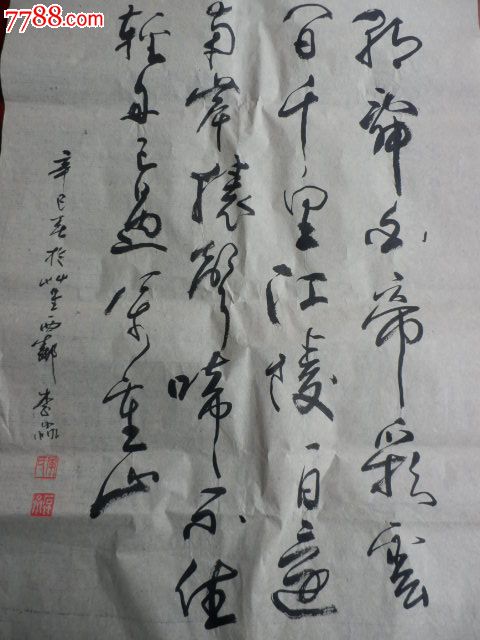 7788.com
朝辭白帝彩雲
間千里江陵一日還
兩岸猿聲啼不住
輕舟已過万重山
辛巳春於西鄰 李